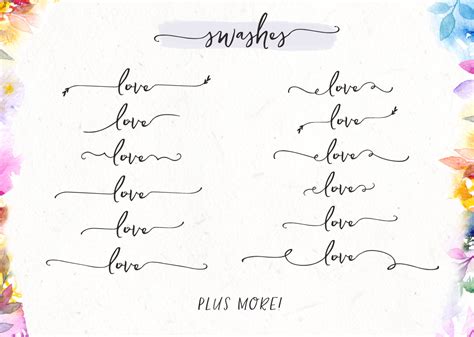 swashes
love love
love love
love love
love love
love love
love love
PLUS MORE!